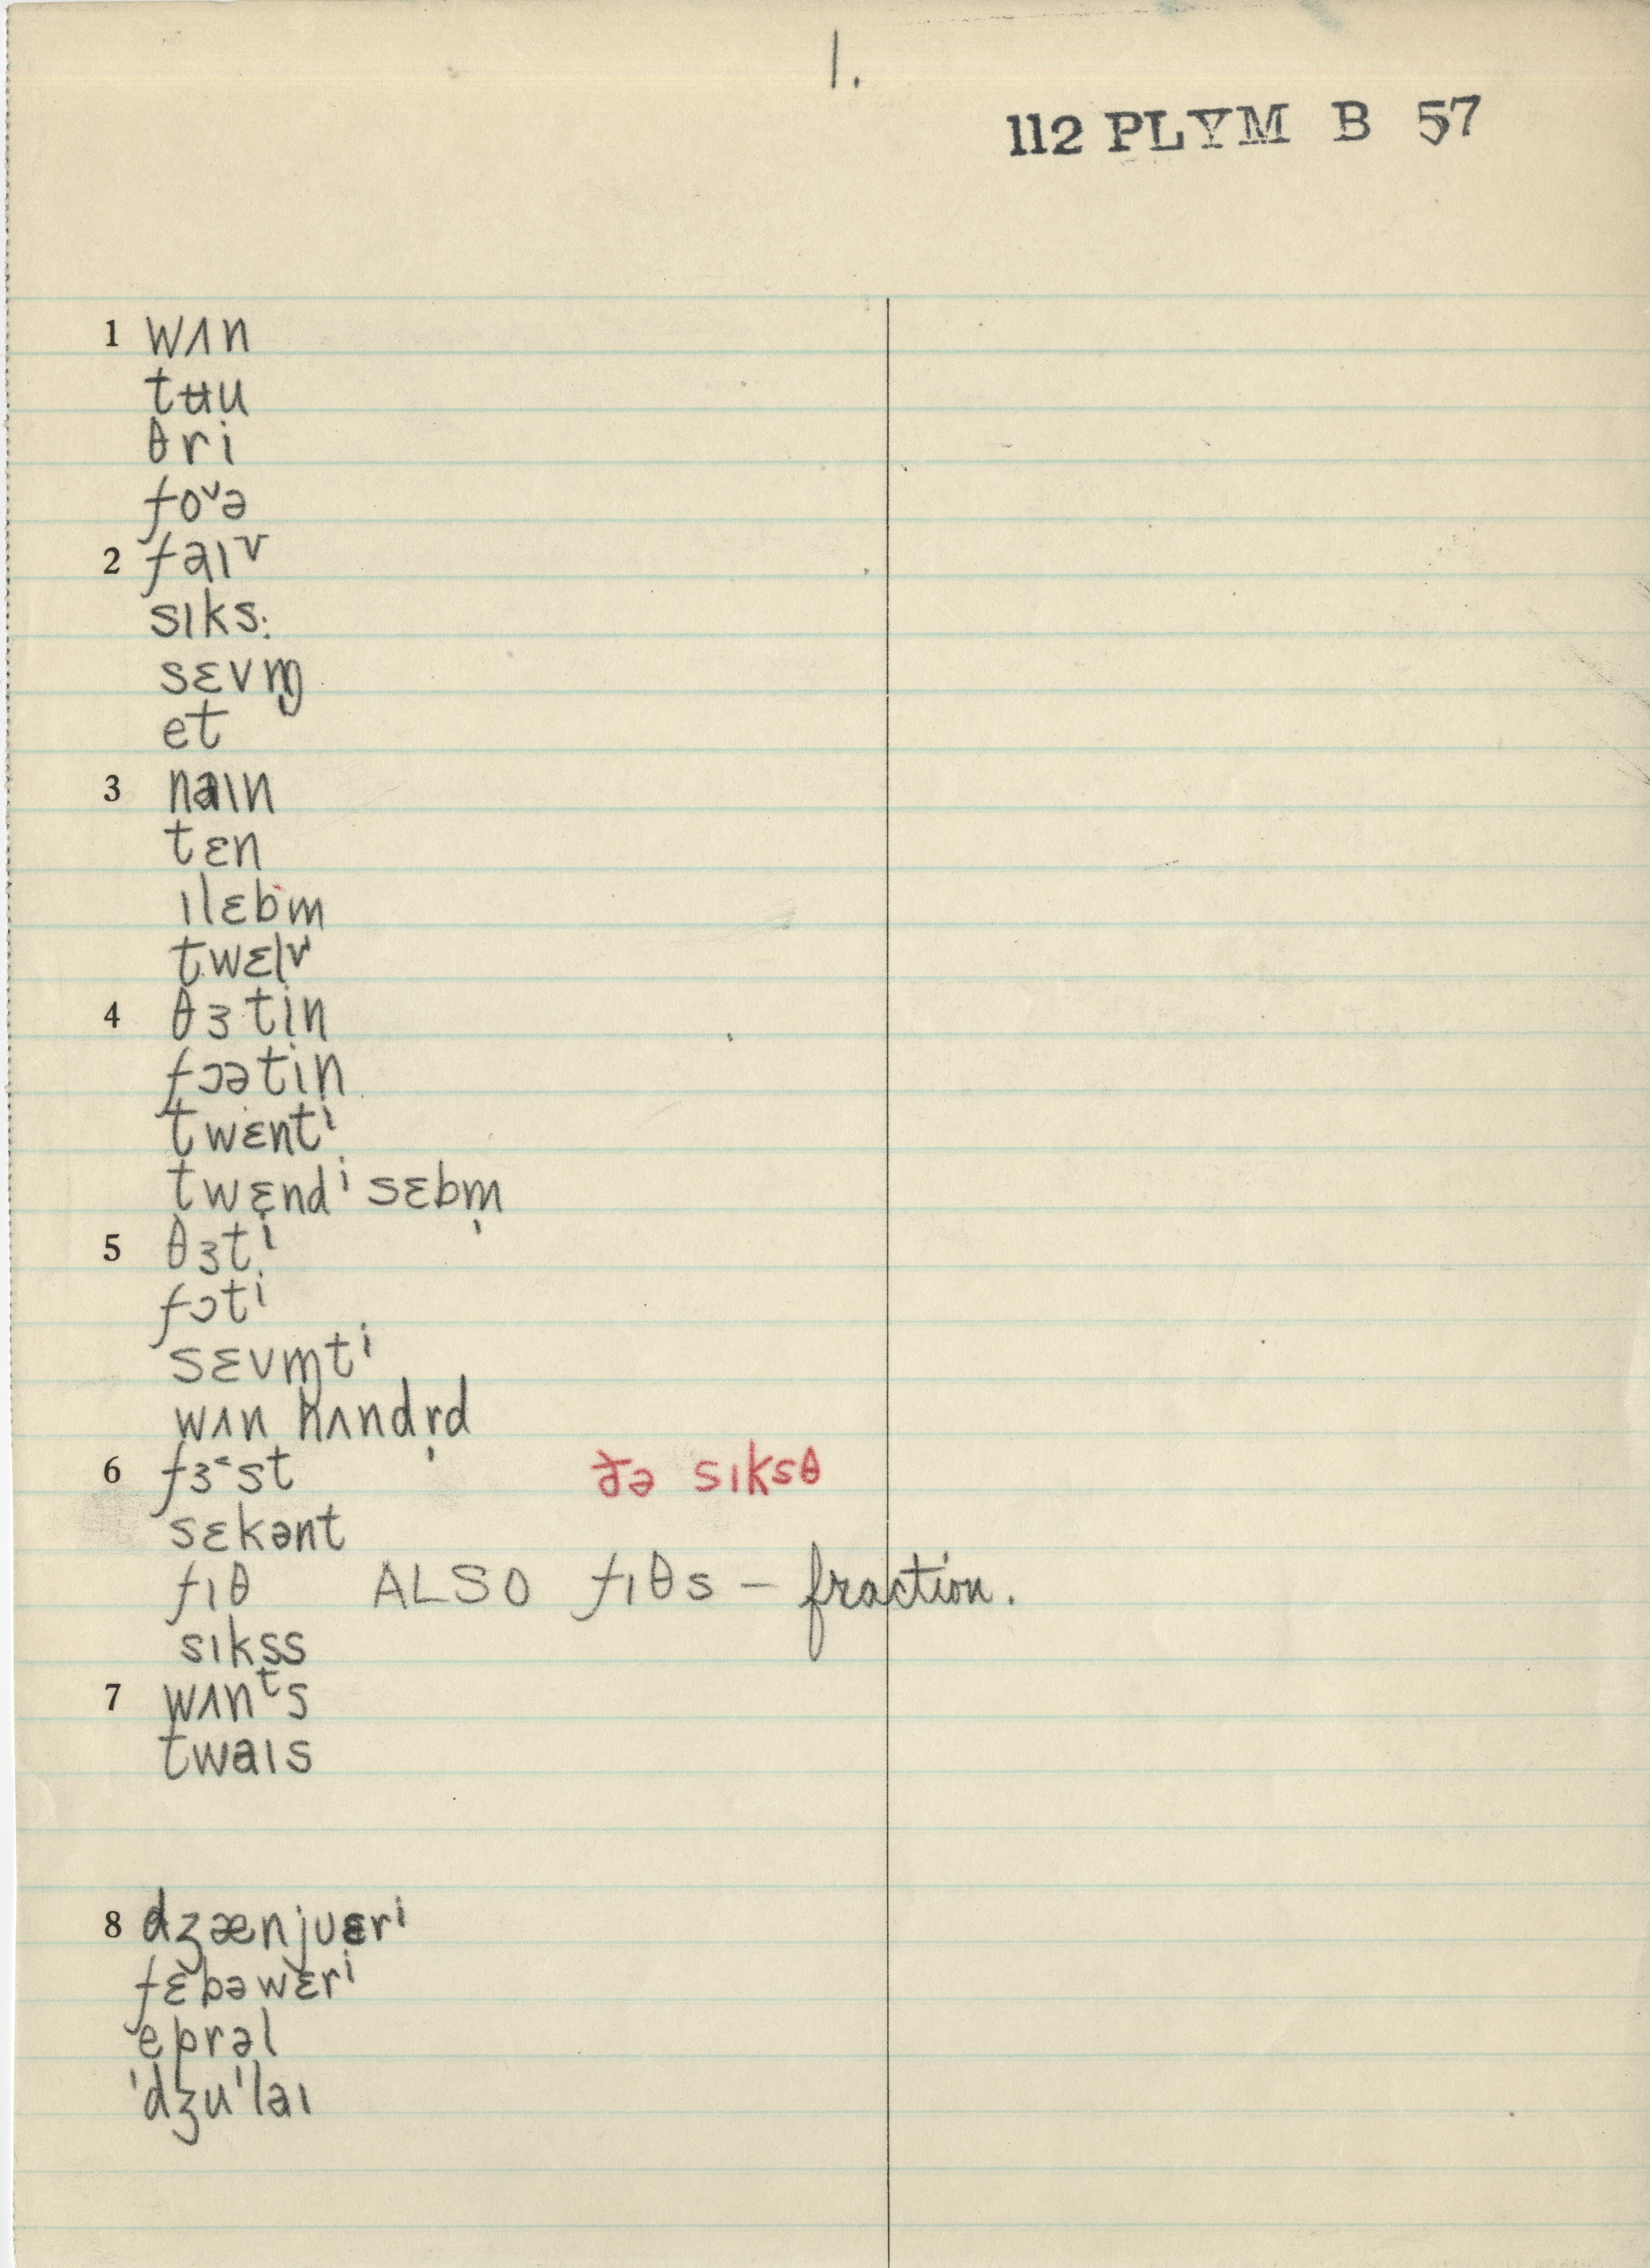 1.
112 PLYM B 57
1 wʌn
tʉu
θri
foᵛə
2 faɪᵛ
sɪks:
sɛvm̩
et
3 naɪn
tɛn
ɪlɛbm
twɛlᵛ
4 θɜtin
fɔətin
twɛntⁱ
twɛndⁱ sɛbm̩
5 θɜtⁱ
fɔtⁱ
sɛvɱtⁱ
wʌn hʌndr̩d
6 fɜ˂st ðə sɪksθ
sɛkənt
fɪθ ALSO fɪθs — fraction.
sɪkss
7 wʌnᵗs
twaɪs
8 dʒænjuɛrⁱ
fɛbəwɛrⁱ
eprəl
'dʒu'laɪ